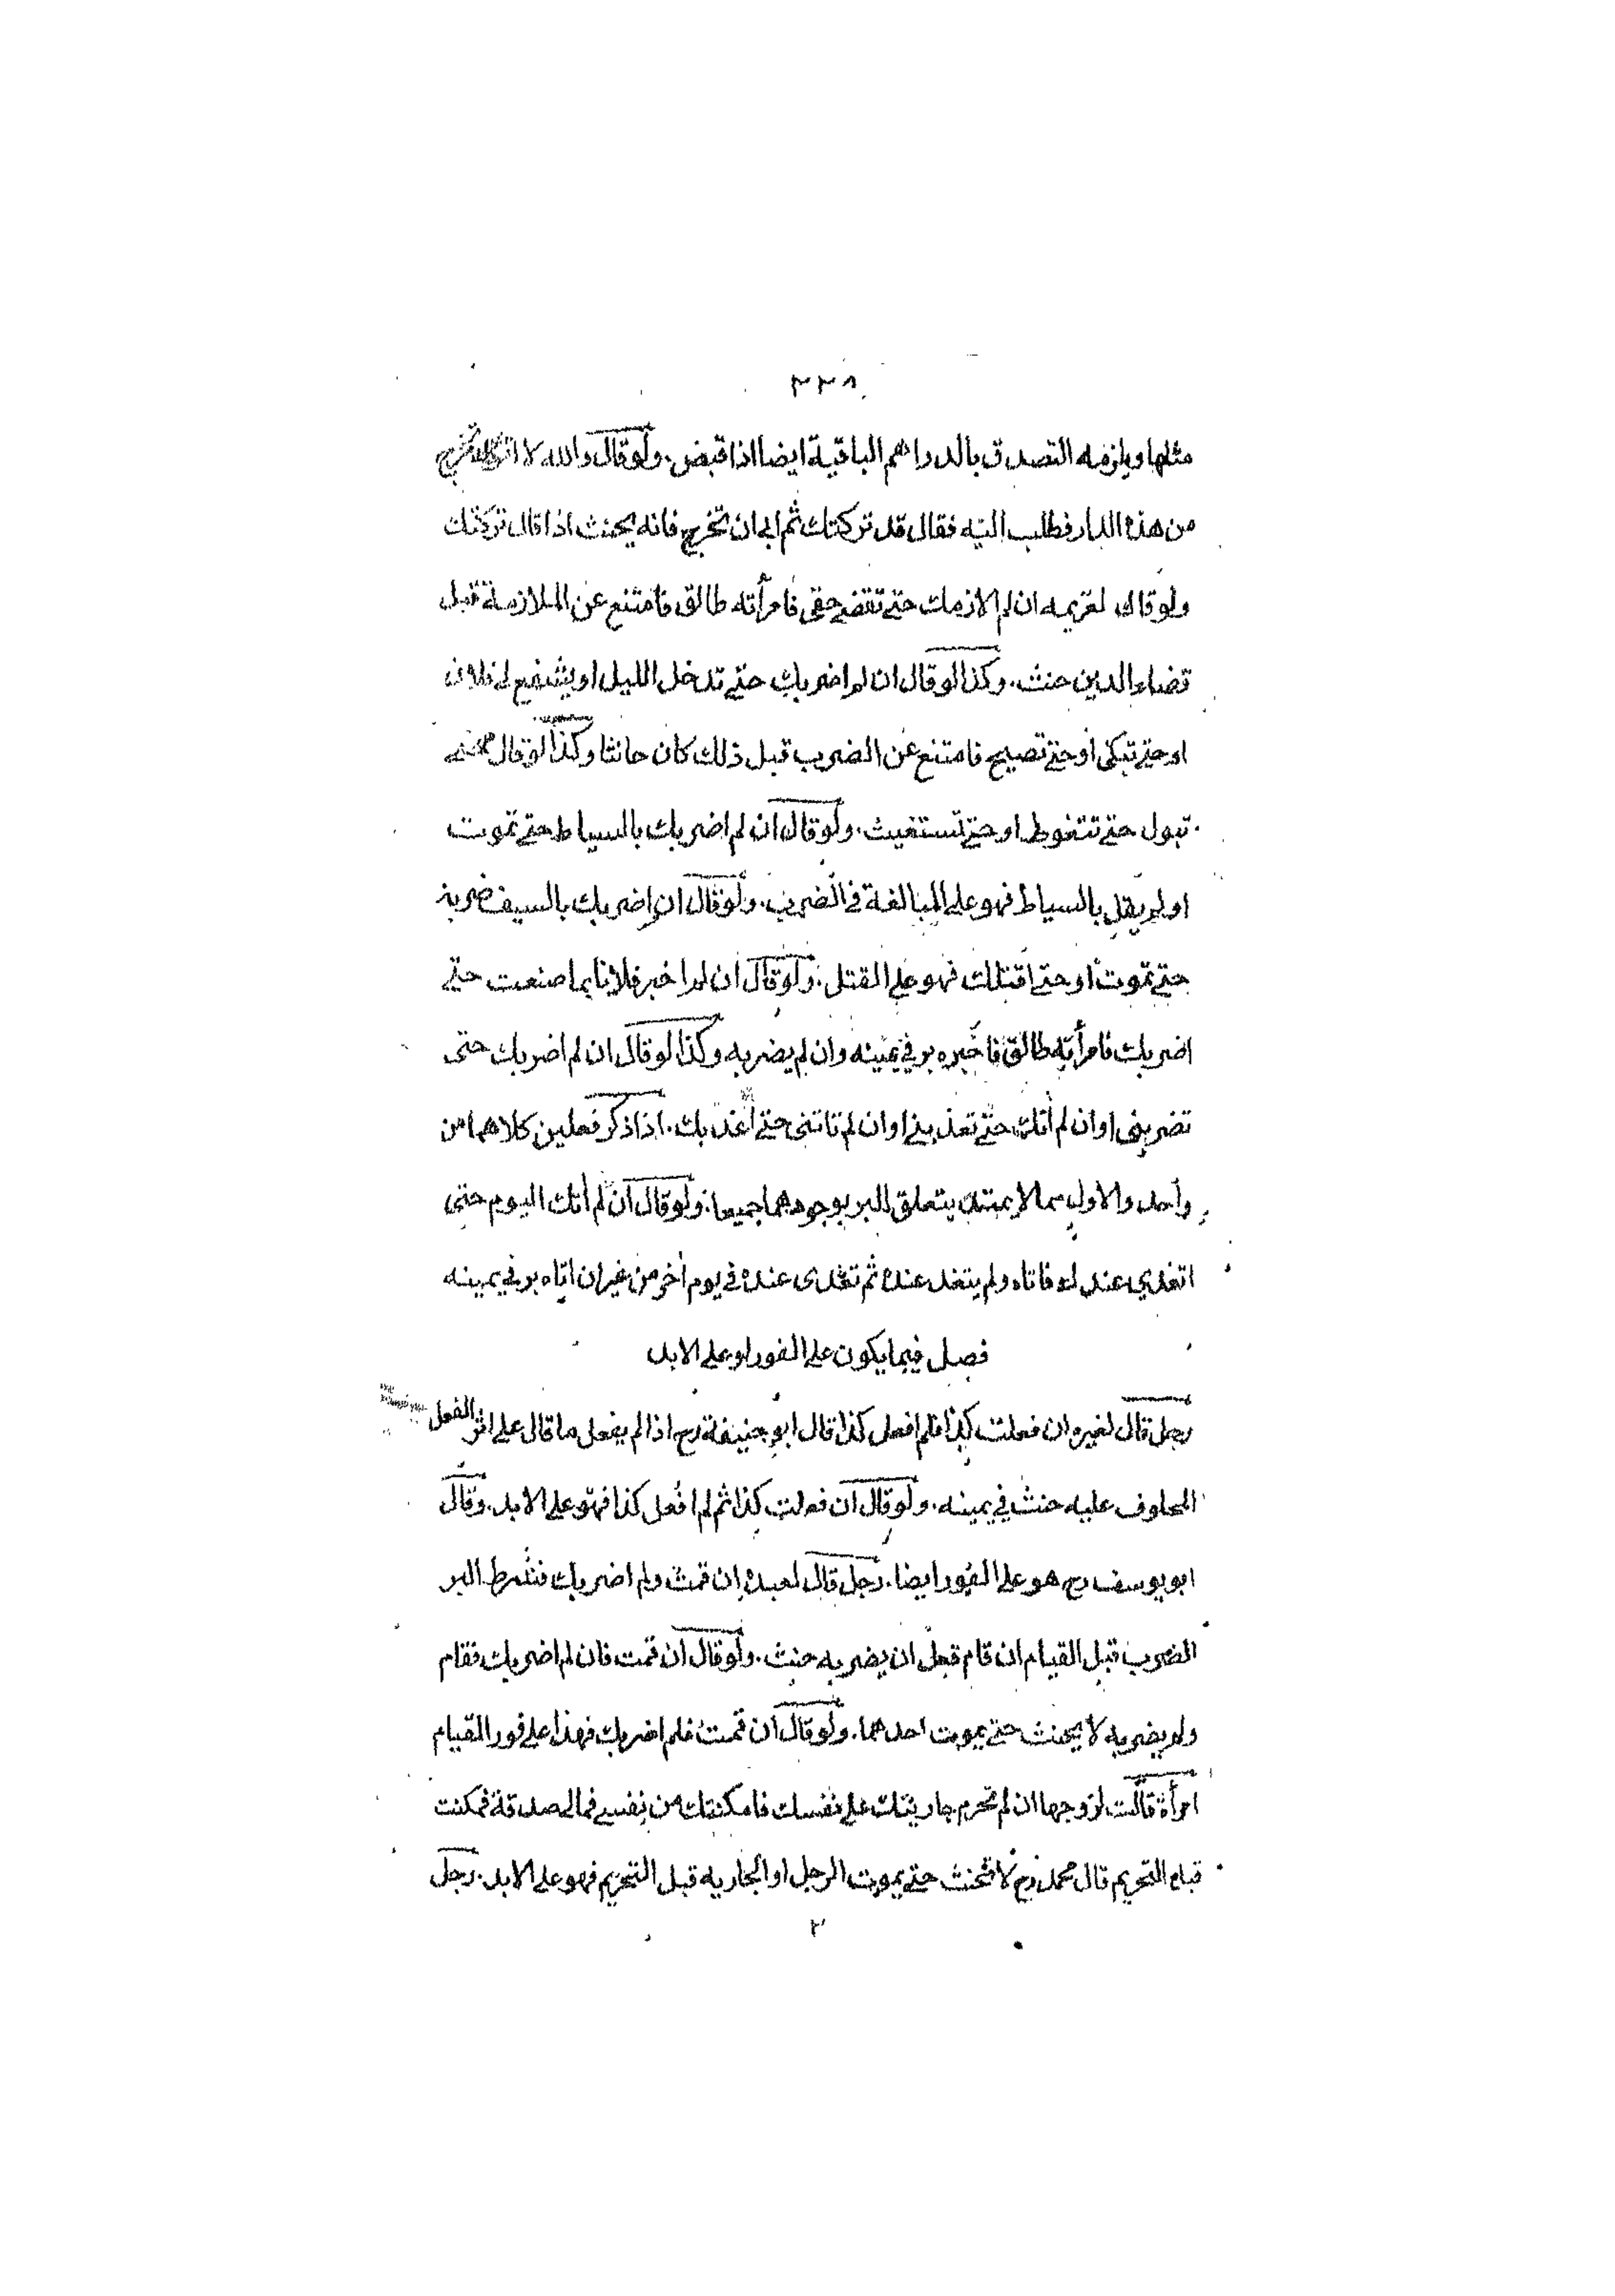 ٣٣٨
مثلها ويلزمه التصدق بالدراهم الباقية ايضا اذا قبض. ولو قال والله لا تخرج
من هذه الدار فطلب اليه فقال قد تركتك ثم ابى ان تخرج فانه يحنث اذا قال تركتك
ولو قال لغريمه ان لم الازمك حتى تقضي حقى فامرأته طالق فامتنع عن الملازمة قبل
قضاء الدين حنث. وكذا لو قال ان لم اضربك حتى تدخل الليل او يشفع لى فلان
او حتى تبكى او حتى تصيح فامتنع عن الضرب قبل ذلك كان حانثا وكذا لو قال حتى
تبول حتى تتغوط او حتى تستغيث. ولو قال ان لم اضربك بالسياط حتى تموت
او لم يقل بالسياط فهو على المبالغة في الضرب. ولو قال ان لم اضربك بالسيف
حتى تموت او حتى اقتلك فهو على القتل. ولو قال ان لم اخبر فلانا بما صنعت حتى
اضربك فامرأته طالق فاخبره بر في يمينه وان لم يضربه وكذا لو قال ان لم اضربك حتى
تضربنى او ان لم أتك حتى تغدينى او ان لم تاتنى حتى أغدبك. اذا ذكر فعلين كلاهما من
واحد والاول مما لا يمتد يتعلق البر بوجودهما جميعا. ولو قال ان لم أتك اليوم حتى
اتغدي عندك فاتاه ولم يتغد عنده ثم تغدى عنده في يوم أخر من غير ان اتاه بر في يمينه
فصل فيما يكون على الفور او على الابد
رجل قال لغيره ان فعلت كذا فلم افعل كذا قال ابو حنيفة رح اذا لم يفعل ما قال على اثر الفعل
المحلوف عليه حنث في يمينه. ولو قال ان فعلت كذا ثم لم افعل كذا فهو على الابد. وقال
ابو يوسف رح هو على الفور ايضا. رجل قال لعبده ان قمت ولم اضربك فشرط البر
الضرب قبل القيام ان قام قبل ان يضربه حنث. ولو قال ان قمت فان لم اضربك فقام
ولم يضربه لا يحنث حتى يموت احدهما. ولو قال ان قمت فلم اضربك فهذا على فور القيام
امرأة قالت لزوجها ان لم تحرم جاريتك على نفسك فامكنتك من نفسى فمالى صدقة فمكنت
قبل التحريم قال محمد رح لا تحنث حتى يموت الرجل او الجاريه قبل التحريم فهو على الابد. رجل